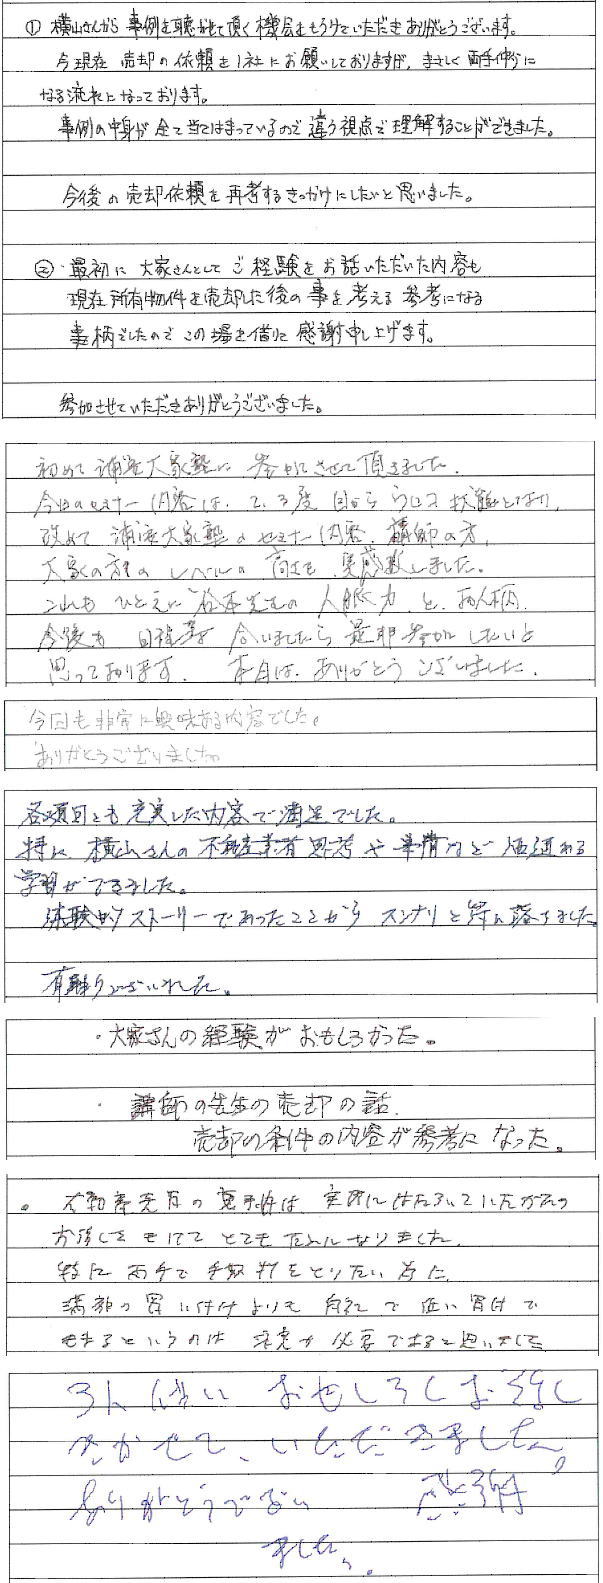 ① 横山さんから事例を聴かせて頂く機会をもうけていただきありがとうございます。
今現在 売却の依頼を1社にお願いしておりますが、まさしく両手仲介に
なる流れになっております。
事例の中身が全て当てはまっているので違う視点で理解することができました。
今後の売却依頼を再考するきっかけにしたいと思いました。
② ・最初に 大家さんとしてご経験をお話いただいた内容も
現在所有物件を売却した後の事を考える参考になる
事柄でしたのでこの場を借りて感謝申し上げます。
参加させていただきありがとうございました。
初めて浦安大家塾に参加させて頂きました。
今回のセミナー内容は、2、3度目からウロコ状態となり、
改めて浦安大家塾のセミナー内容、講師の方、
大家の方々のレベルの高さを実感致しました。
これもひとえに 先生の人脈力と、お人柄、
今後も日程等合いましたら是非参加したいと
思っております。本日は、ありがとうございました。
今回も非常に興味ある内容でした。
ありがとうございました。
各項目とも充実した内容で満足でした。
特に、横山さんの不動産業者思考や事情など 価値ある
学習ができました。
体験的ストーリーであったことからスンナリと 落ちました。
有難うございました。
・大家さんの経験がおもしろかった。
・講師の先生の売却の話、
売却の条件の内容が参考になった。
。不動産売買の 実際にはたらいていたかたの
お話しをきけてとてもためになりました。
特に両手で手数料をとりたい為に
満額の買い付けよりも自社で低い買付で
きめるというのは 注意が必要であると思いました
3人 おもしろくお話し
きかせて、いただきました。
ありがとうござい 感謝
ました。